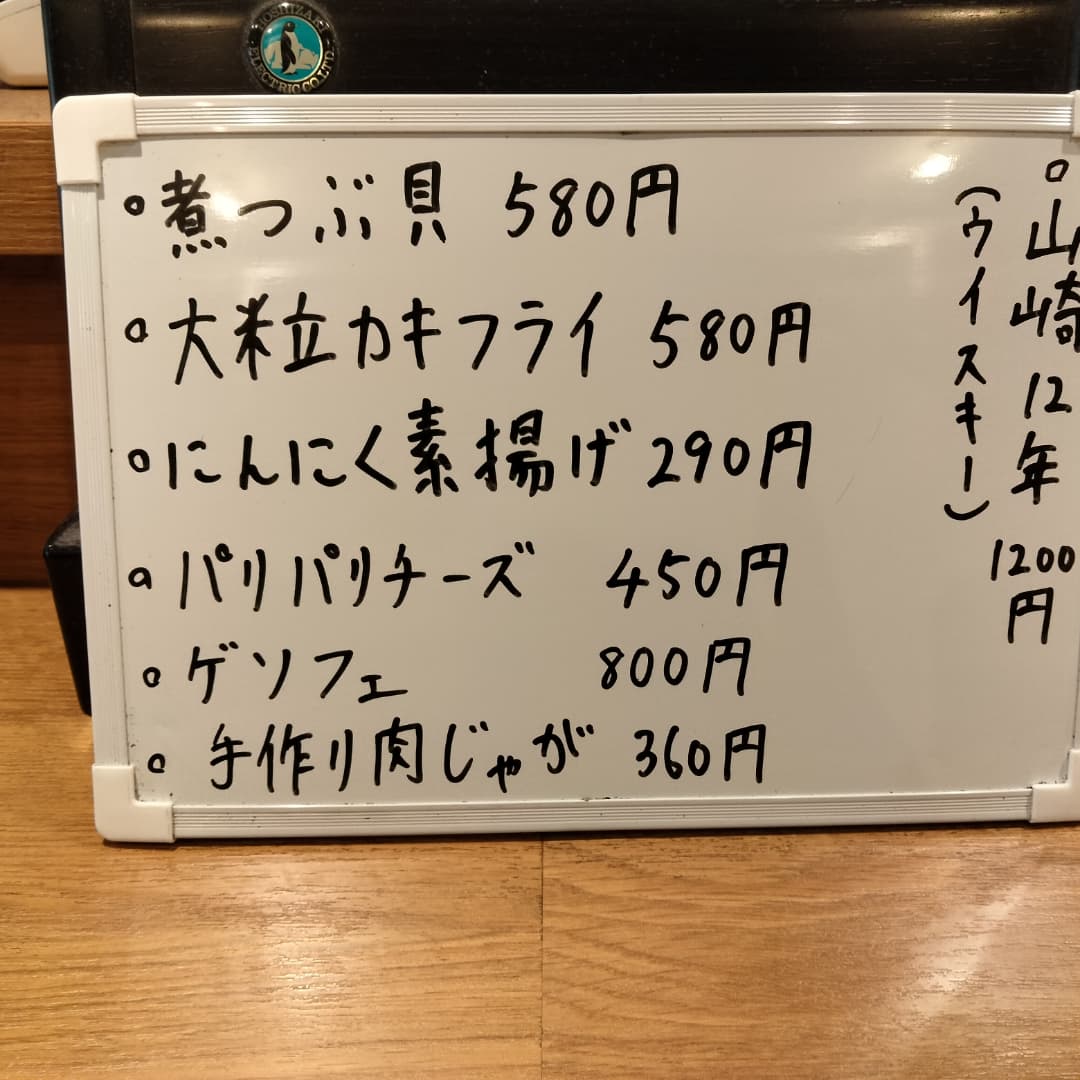 HOSHIZAKI ELECTRIC CO.LTD.
。煮つぶ貝 580円
。大粒カキフライ 580円
。にんにく素揚げ 290円
。パリパリチーズ 450円
。ゲソフェ 800円
。手作り肉じゃが 360円
。山崎12年 1200円
(ウイスキー)